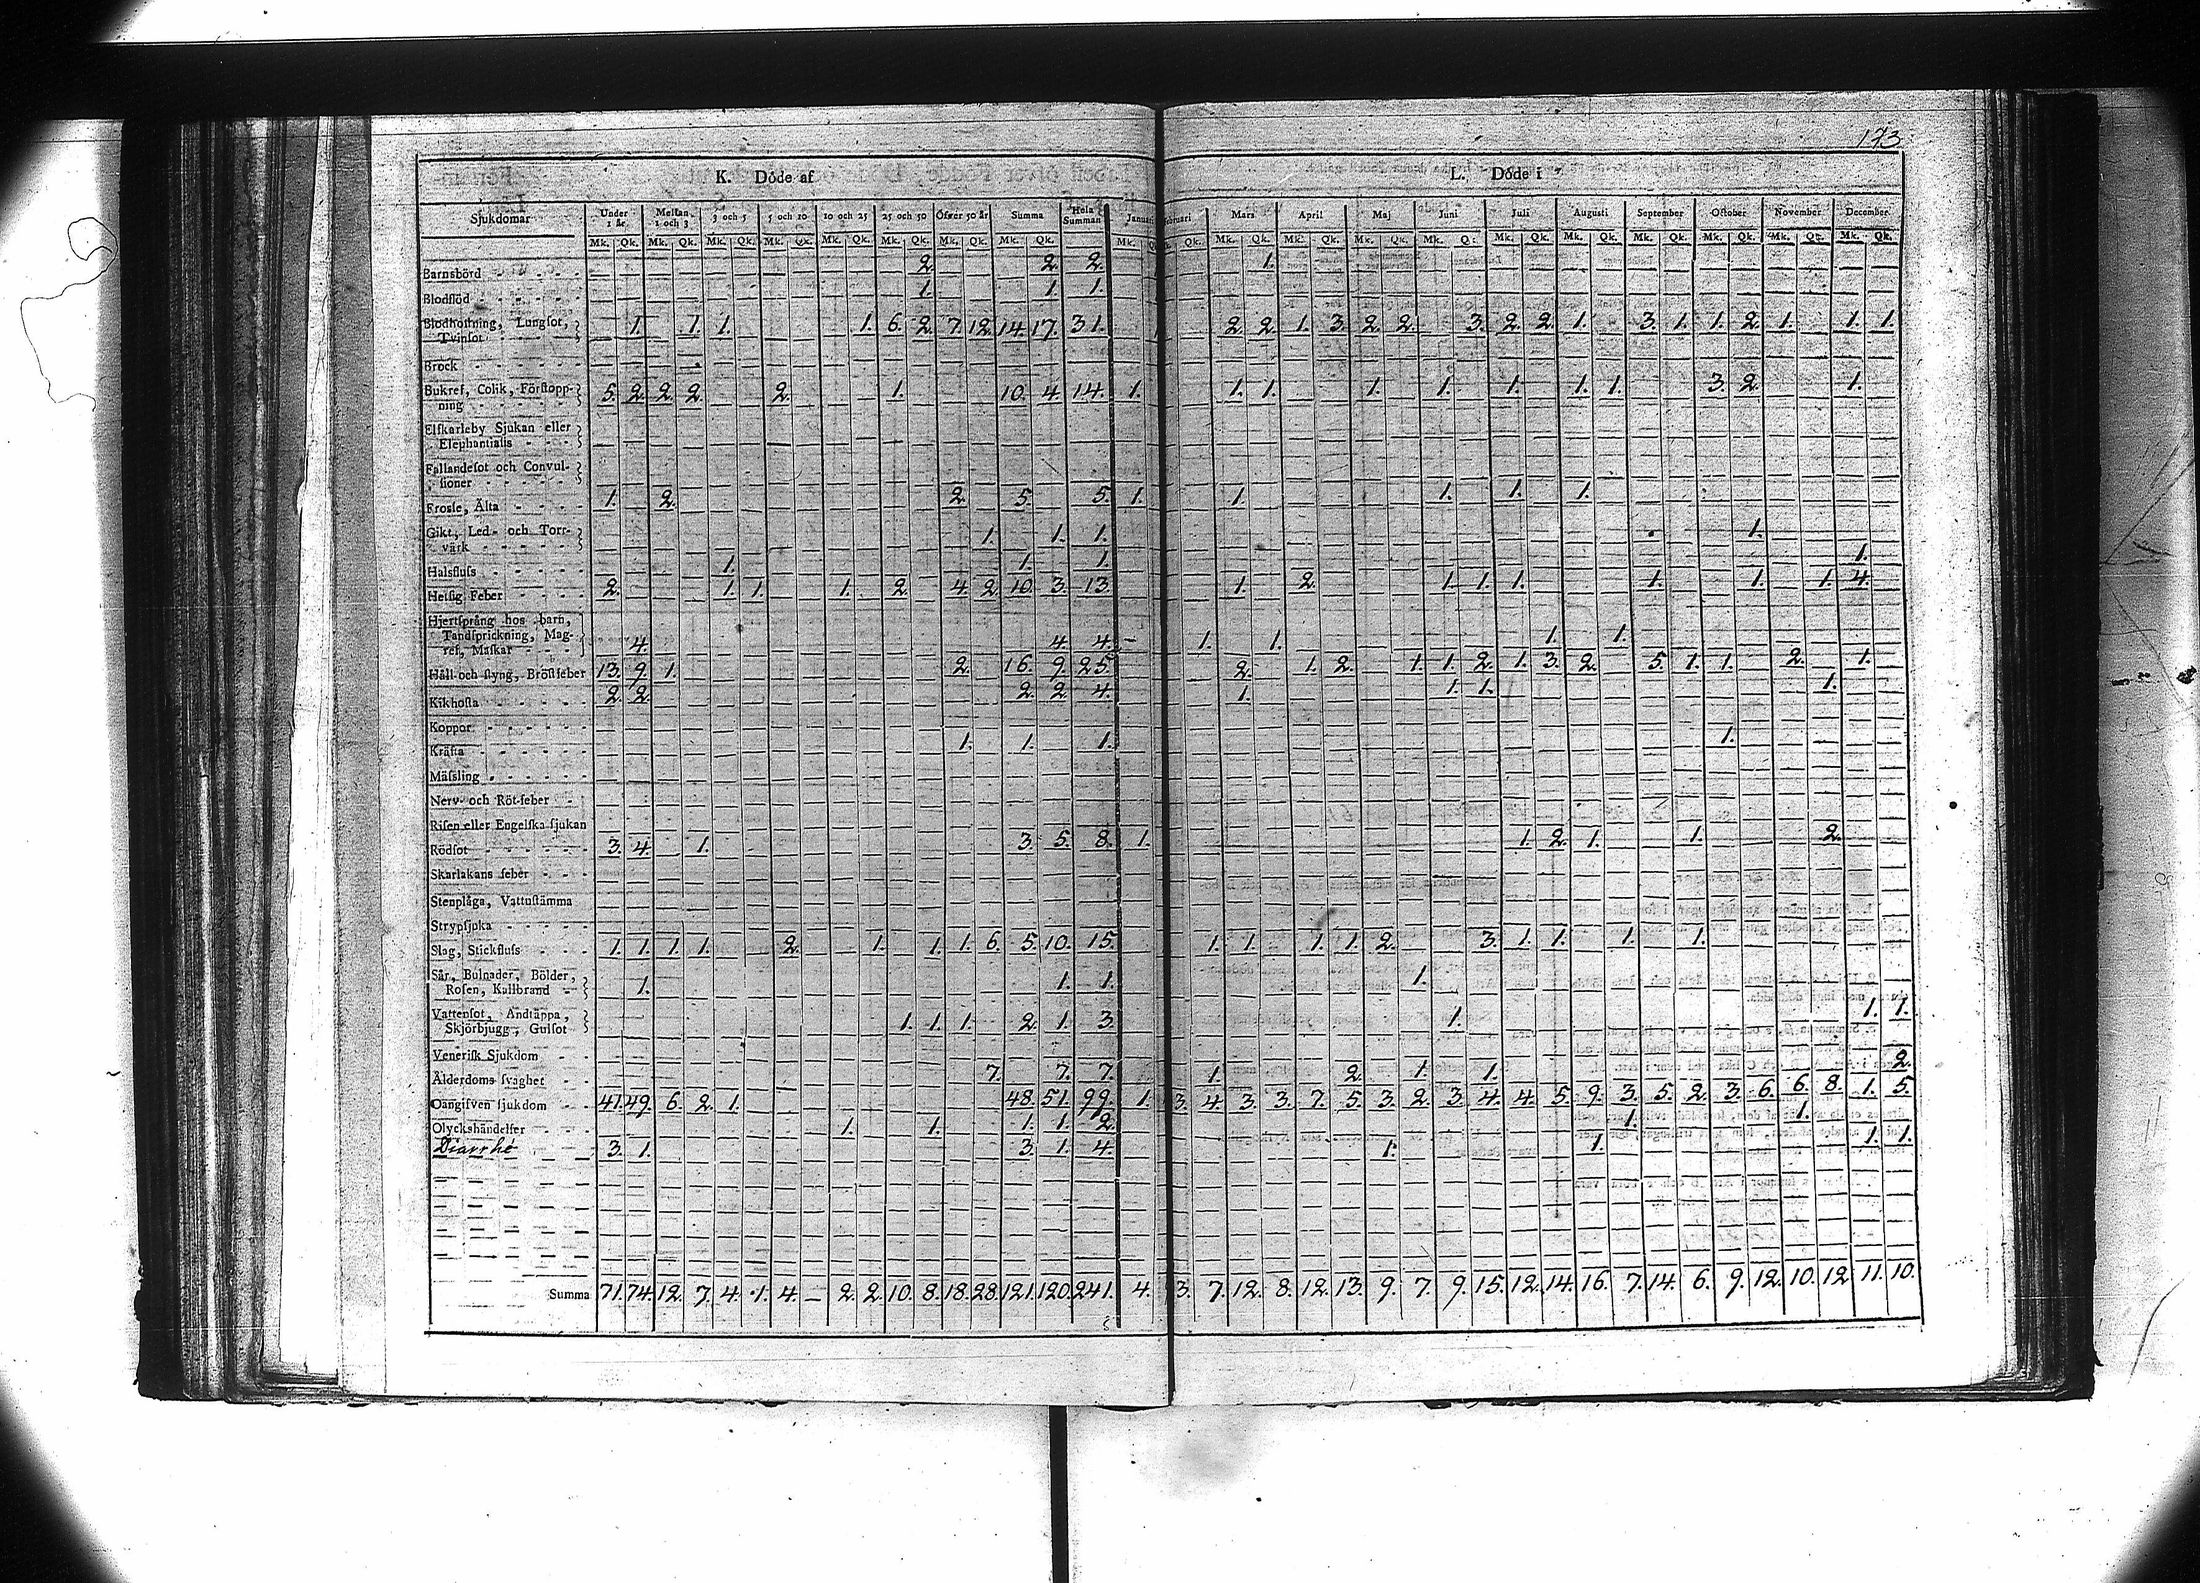 173
K. Döde af L. Döde i
Sjukdomar Under 1 år. Mellan 1 och 3 3 och 5 5 och 10 10 och 25 25 och 50 Öfver 50 år Summa Hela Summan Januari Mars April Maj Juni Juli Augusti September October November December.
Mk. Qk. Mk. Qk. Mk. Qk. Mk. Qk. Mk. Qk. Mk. Qk. Mk. Qk. Mk. Qk. Mk. Qk. Mk. Qk. Mk. Qk. Mk. Qk. Mk. Qk. Mk. Qk. Mk. Qk. Mk. Qk. Mk. Qk. Mk. Qk. Mk. Qk.
Barnsbörd 2. 2. 2. 1.
Blodflöd 1. 1. 1.
Blodhostning, Lungsot, Tvinsot 1. 1. 1. 1. 6. 2. 7. 12. 14. 17. 31. 2. 2. 1. 3. 2. 2. 3. 2. 2. 1. 3. 1. 1. 2. 1. 1. 1.
Brock
Bukref, Colik, Förstoppning 5. 2. 2. 2. 2. 1. 10. 4. 14. 1. 1. 1. 1. 1. 1. 1. 1. 3. 2. 1.
Elfkarleby Sjukan eller Elephantiasis
Fallandesot och Convulsioner
Frossa, Älta 1. 2. 2. 5. 5. 1. 1. 1. 1. 1.
Gikt, Led- och Torrvärk 1. 1. 1. 1.
Halsfluss 1. 1. 1. 1.
Hetsig Feber 2. 1. 1. 1. 2. 4. 2. 10. 3. 13. 1. 2. 1. 1. 1. 1. 1. 1. 4.
Hjertsprång hos barn, Tandsprickning, Magref, Maskar 4. 4. 4. 1. 1. 1. 1.
Håll och styng, Bröstfeber 13. 9. 1. 2. 16. 9. 25 2. 1. 2. 1. 1. 2. 1. 3. 2. 5. 1. 1. 2. 1.
Kikhosta 2. 2. 2. 2. 4. 1. 1. 1. 1.
Koppor
Kräfta 1. 1. 1. 1.
Mässling
Nerv- och Röt-feber
Risen eller Engelska sjukan
Rödsot 3. 4. 1. 3. 5. 8. 1. 1. 2. 1. 1. 2.
Skarlakans feber
Stenplåga, Vattustämma
Strypsjuka
Slag, Stickfluss 1. 1. 1. 1. 2. 1. 1. 1. 6. 5. 10. 15. 1. 1. 1. 1. 2. 3. 1. 1. 1. 1.
Sår, Bulnader, Bölder, Rosen, Kallbrand 1. 1. 1. 1.
Vattensot, Andtäppa, Skjörbjugg, Gulsot 1. 1. 1. 2. 1. 3. 1. 1. 1.
Venerisk Sjukdom
Ålderdoms svaghet 7. 7. 7. 1. 2. 1. 1. 2.
Oangifven sjukdom 41. 49. 6. 2. 1. 48. 51. 99. 1. 3. 4. 3. 3. 7. 5. 3. 2. 3. 4. 4. 5. 9. 3. 5. 2. 3. 6. 6. 8. 1. 5.
Olyckshändelser 1. 1. 1. 1. 2. 1. 1.
Diarrhé 3. 1. 3. 1. 4. 1. 1. 1. 1.
Summa 71. 74. 12. 7. 4. 1. 4. — 2. 2. 10. 8. 18. 28. 121. 120. 241. 4. 3. 7. 12. 8. 12. 13. 9. 7. 9. 15. 12. 14. 16. 7. 14. 6. 9. 12. 10. 12. 11. 10.